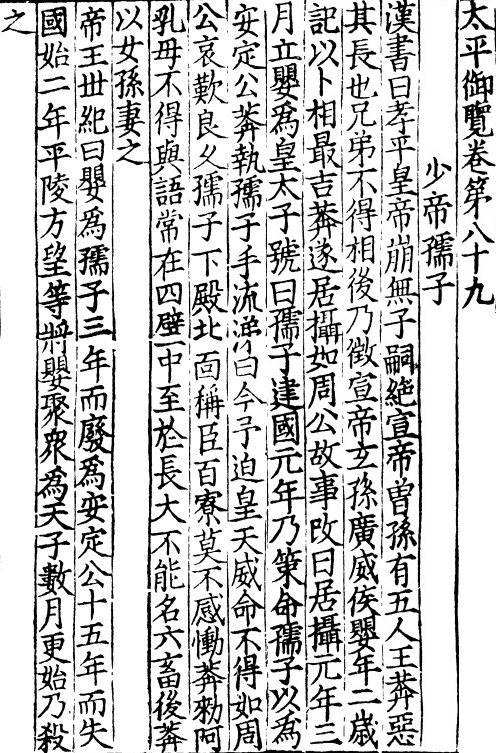 太平御覽卷第八十九
少帝孺子
漢書曰孝平皇帝崩無子嗣絶宣帝曾孫有五人王莽惡
其長也兄弟不得相後乃徵宣帝玄孫廣威侯嬰年二歳
記以卜相最吉莽遂居攝如周公故事改曰居攝元年三
月立嬰為皇太子號曰孺子建國元年乃策命孺子以為
安定公莽執孺子手流涕曰今予迫皇天威命不得如周
公哀歎良久孺子下殿北面稱臣百寮莫不感慟莽勑阿
乳母不得與語常在四壁中至於長大不能名六畜後莽
以女孫妻之
帝王世紀曰嬰為孺子三年而廢為安定公十五年而失
國始二年平陵方望等將嬰聚衆為天子數月更始乃殺
之